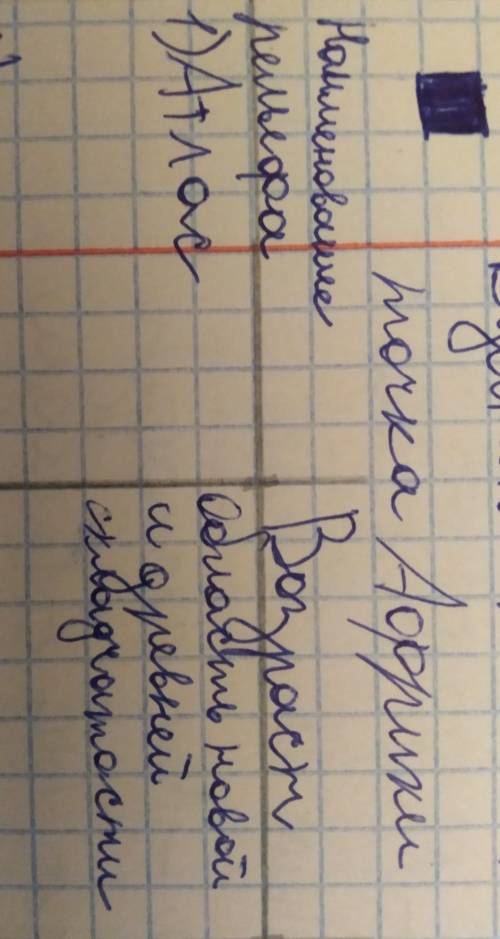 точка Африки
Наименование
рельефа
Возраст
1) Атлас
область новой
и древней
складчатости